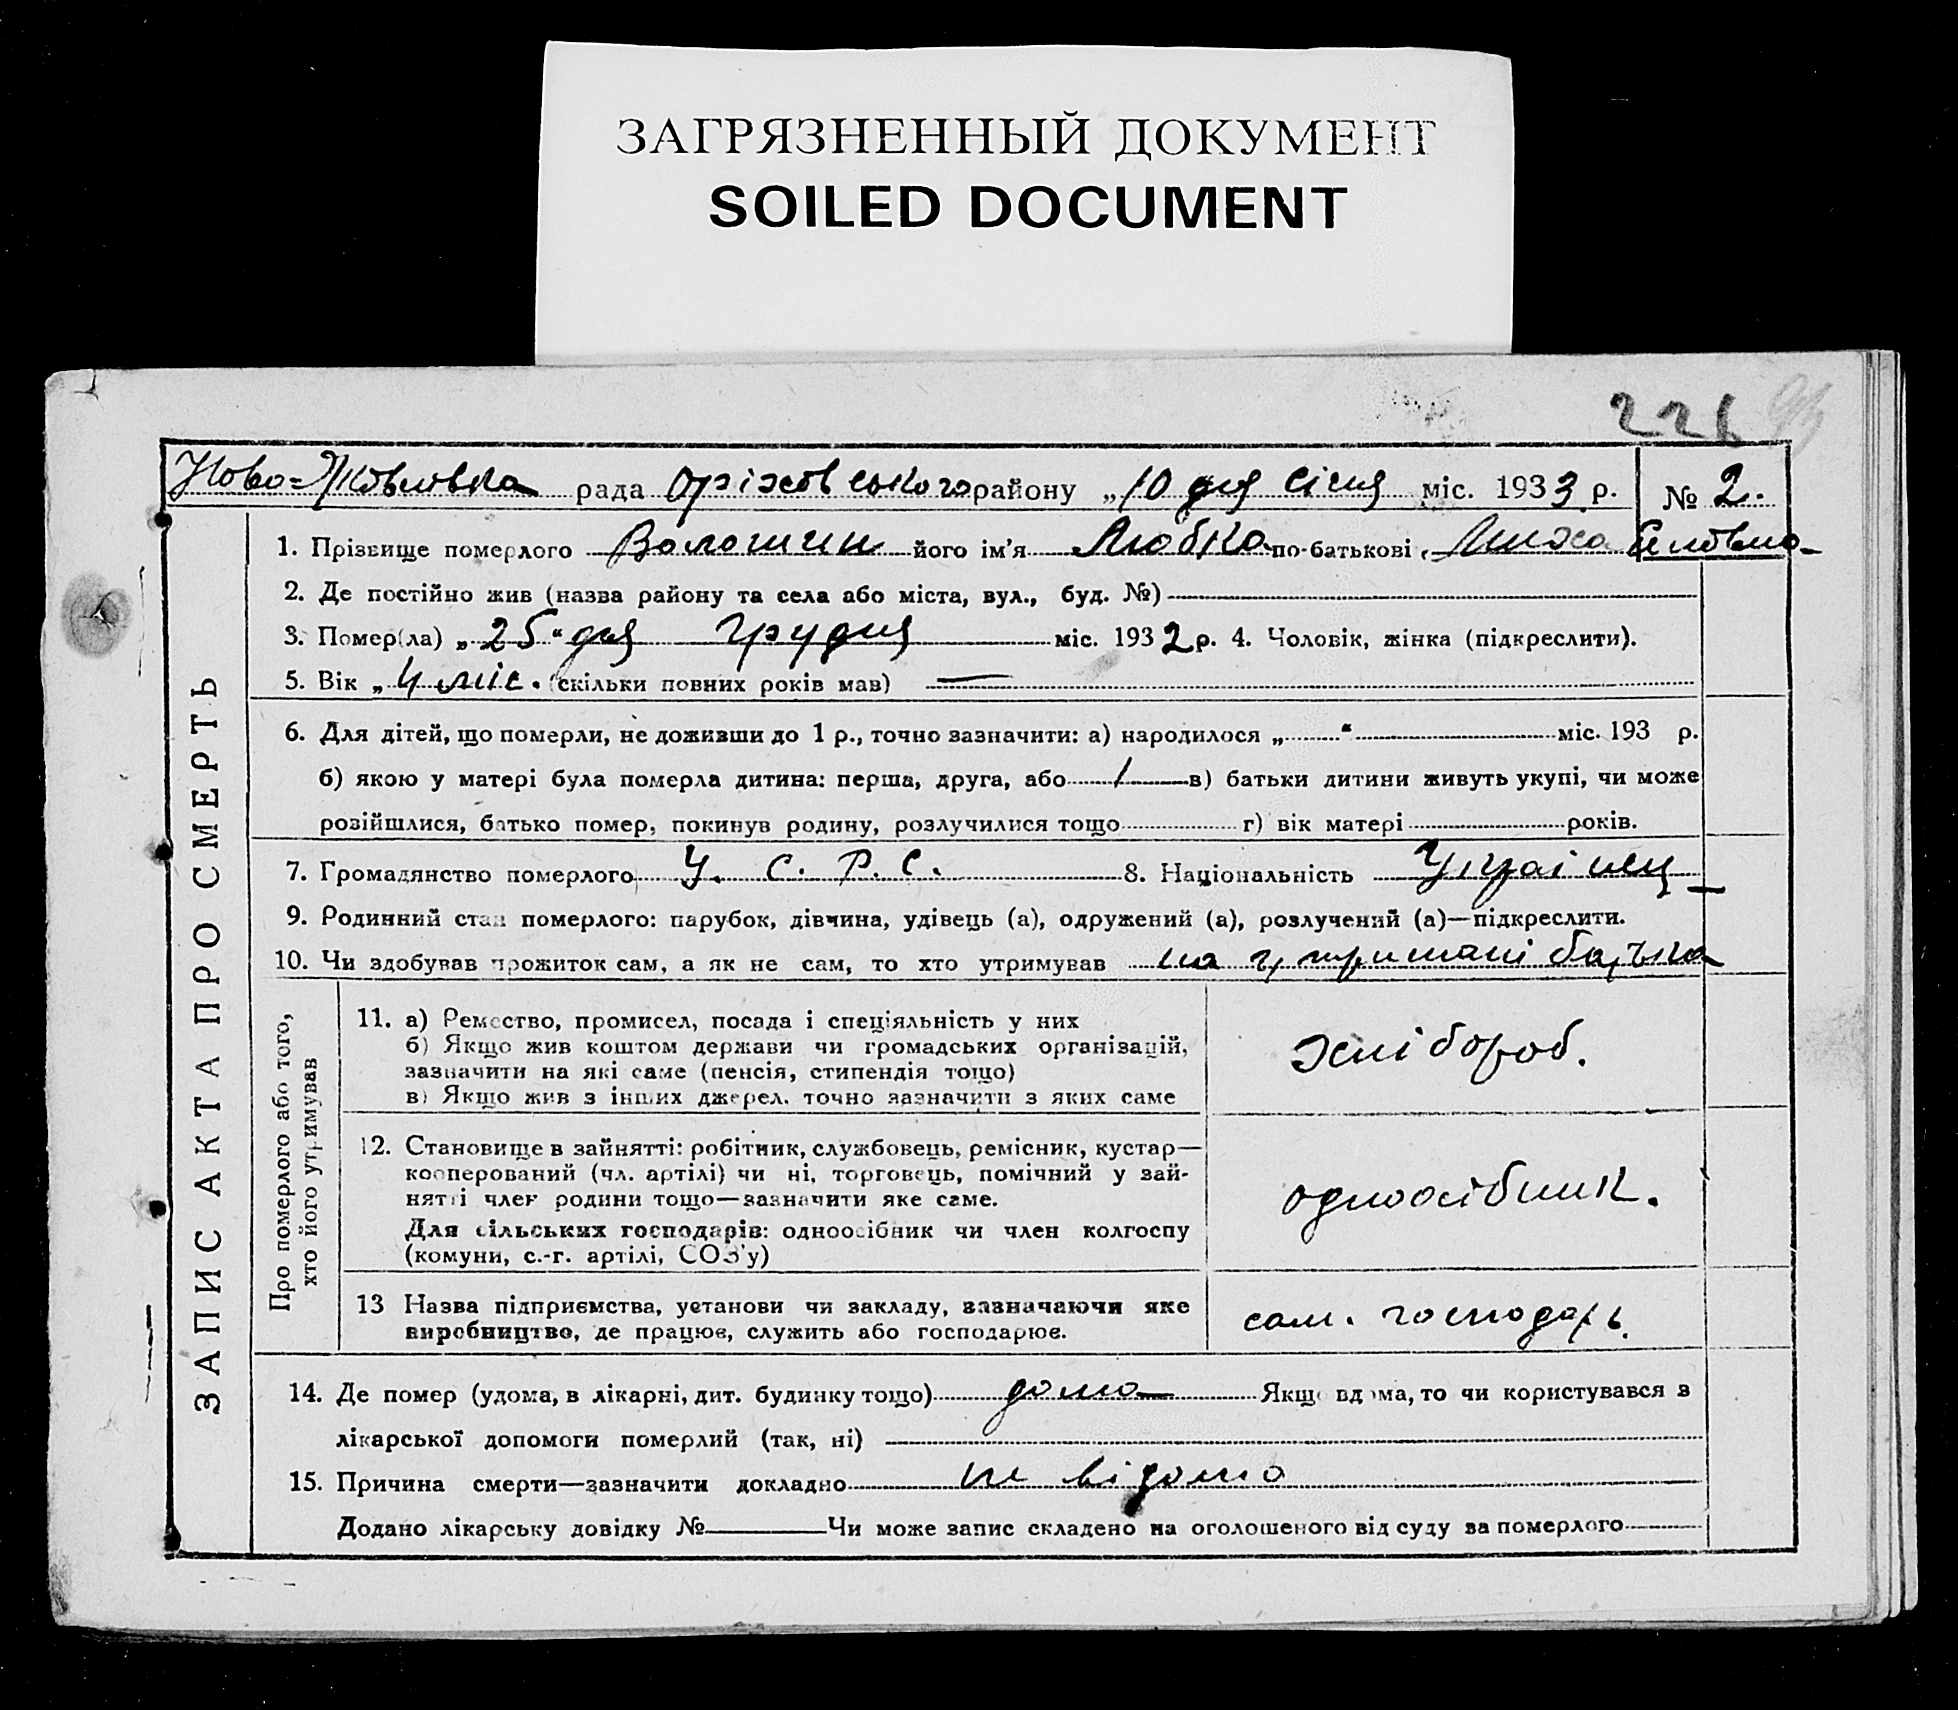 ЗАГРЯЗНЕННЫЙ ДОКУМЕНТ
SOILED DOCUMENT
226 93
Ново=Яковловка рада Оріховського району „10 дня Січня міс. 1933 р. № 2.
ЗАПИС АКТА ПРО СМЕРТЬ
1. Прізвище померлого Волошин його ім'я Любка по-батькові Михайловна
2. Де постійно жив (назва району та села або міста, вул., буд. №)
3. Помер(ла) „25“ дня грудня міс. 1932 р. 4. Чоловік, жінка (підкреслити).
5. Вік „4 міс. (скільки повних років мав) —
6. Для дітей, що померли, не доживши до 1 р., точно зазначити: а) народилося „ “ міс. 193 р.
б) якою у матері була померла дитина: перша, друга, або / в) батьки дитини живуть укупі, чи може
розійшлися, батько помер, покинув родину, розлучилися тощо г) вік матері років.
7. Громадянство померлого У. С. Р. С. 8. Національність Українец
9. Родинний стан померлого: парубок, дівчина, удівець (а), одружений (а), розлучений (а)—підкреслити.
10. Чи здобував прожиток сам, а як не сам, то хто утримував на утримані батька
Про померлого або того,
хто його утримував
11. а) Ремество, промисел, посада і спеціяльність у них
б) Якщо жив коштом держави чи громадських організацій,
зазначити на які саме (пенсія, стипендія тощо)
в) Якщо жив з інших джерел, точно зазначити з яких саме
хлібороб.
12. Становище в зайнятті: робітник, службовець, ремісник, кустар—
кооперований (чл. артілі) чи ні, торговець, помічний у зай-
нятті член родини тощо—зазначити яке саме.
Для сільських господарів: одноосібник чи член колгоспу
(комуни, с.-г. артілі, СОЗ'у)
одноосібник.
13 Назва підприємства, установи чи закладу, зазначаючи яке
виробництво, де працює, служить або господарює.
сам. господарь
14. Де помер (удома, в лікарні, дит. будинку тощо) дома Якщо вдома, то чи користувався з
лікарської допомоги померлий (так, ні)
15. Причина смерти—зазначити докладно не відомо
Додано лікарську довідку № Чи може запис складено на оголошеного від суду за померлого